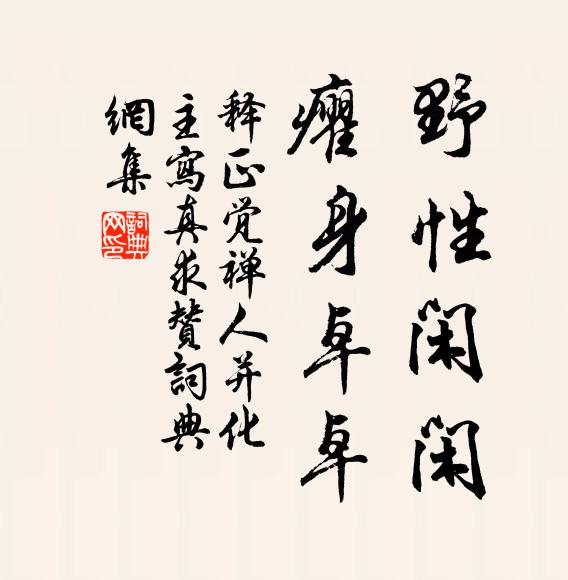 野性闲闲
癯身卓卓
释正觉禅人并化
主寫真求赞詞典
網集
詞典网印